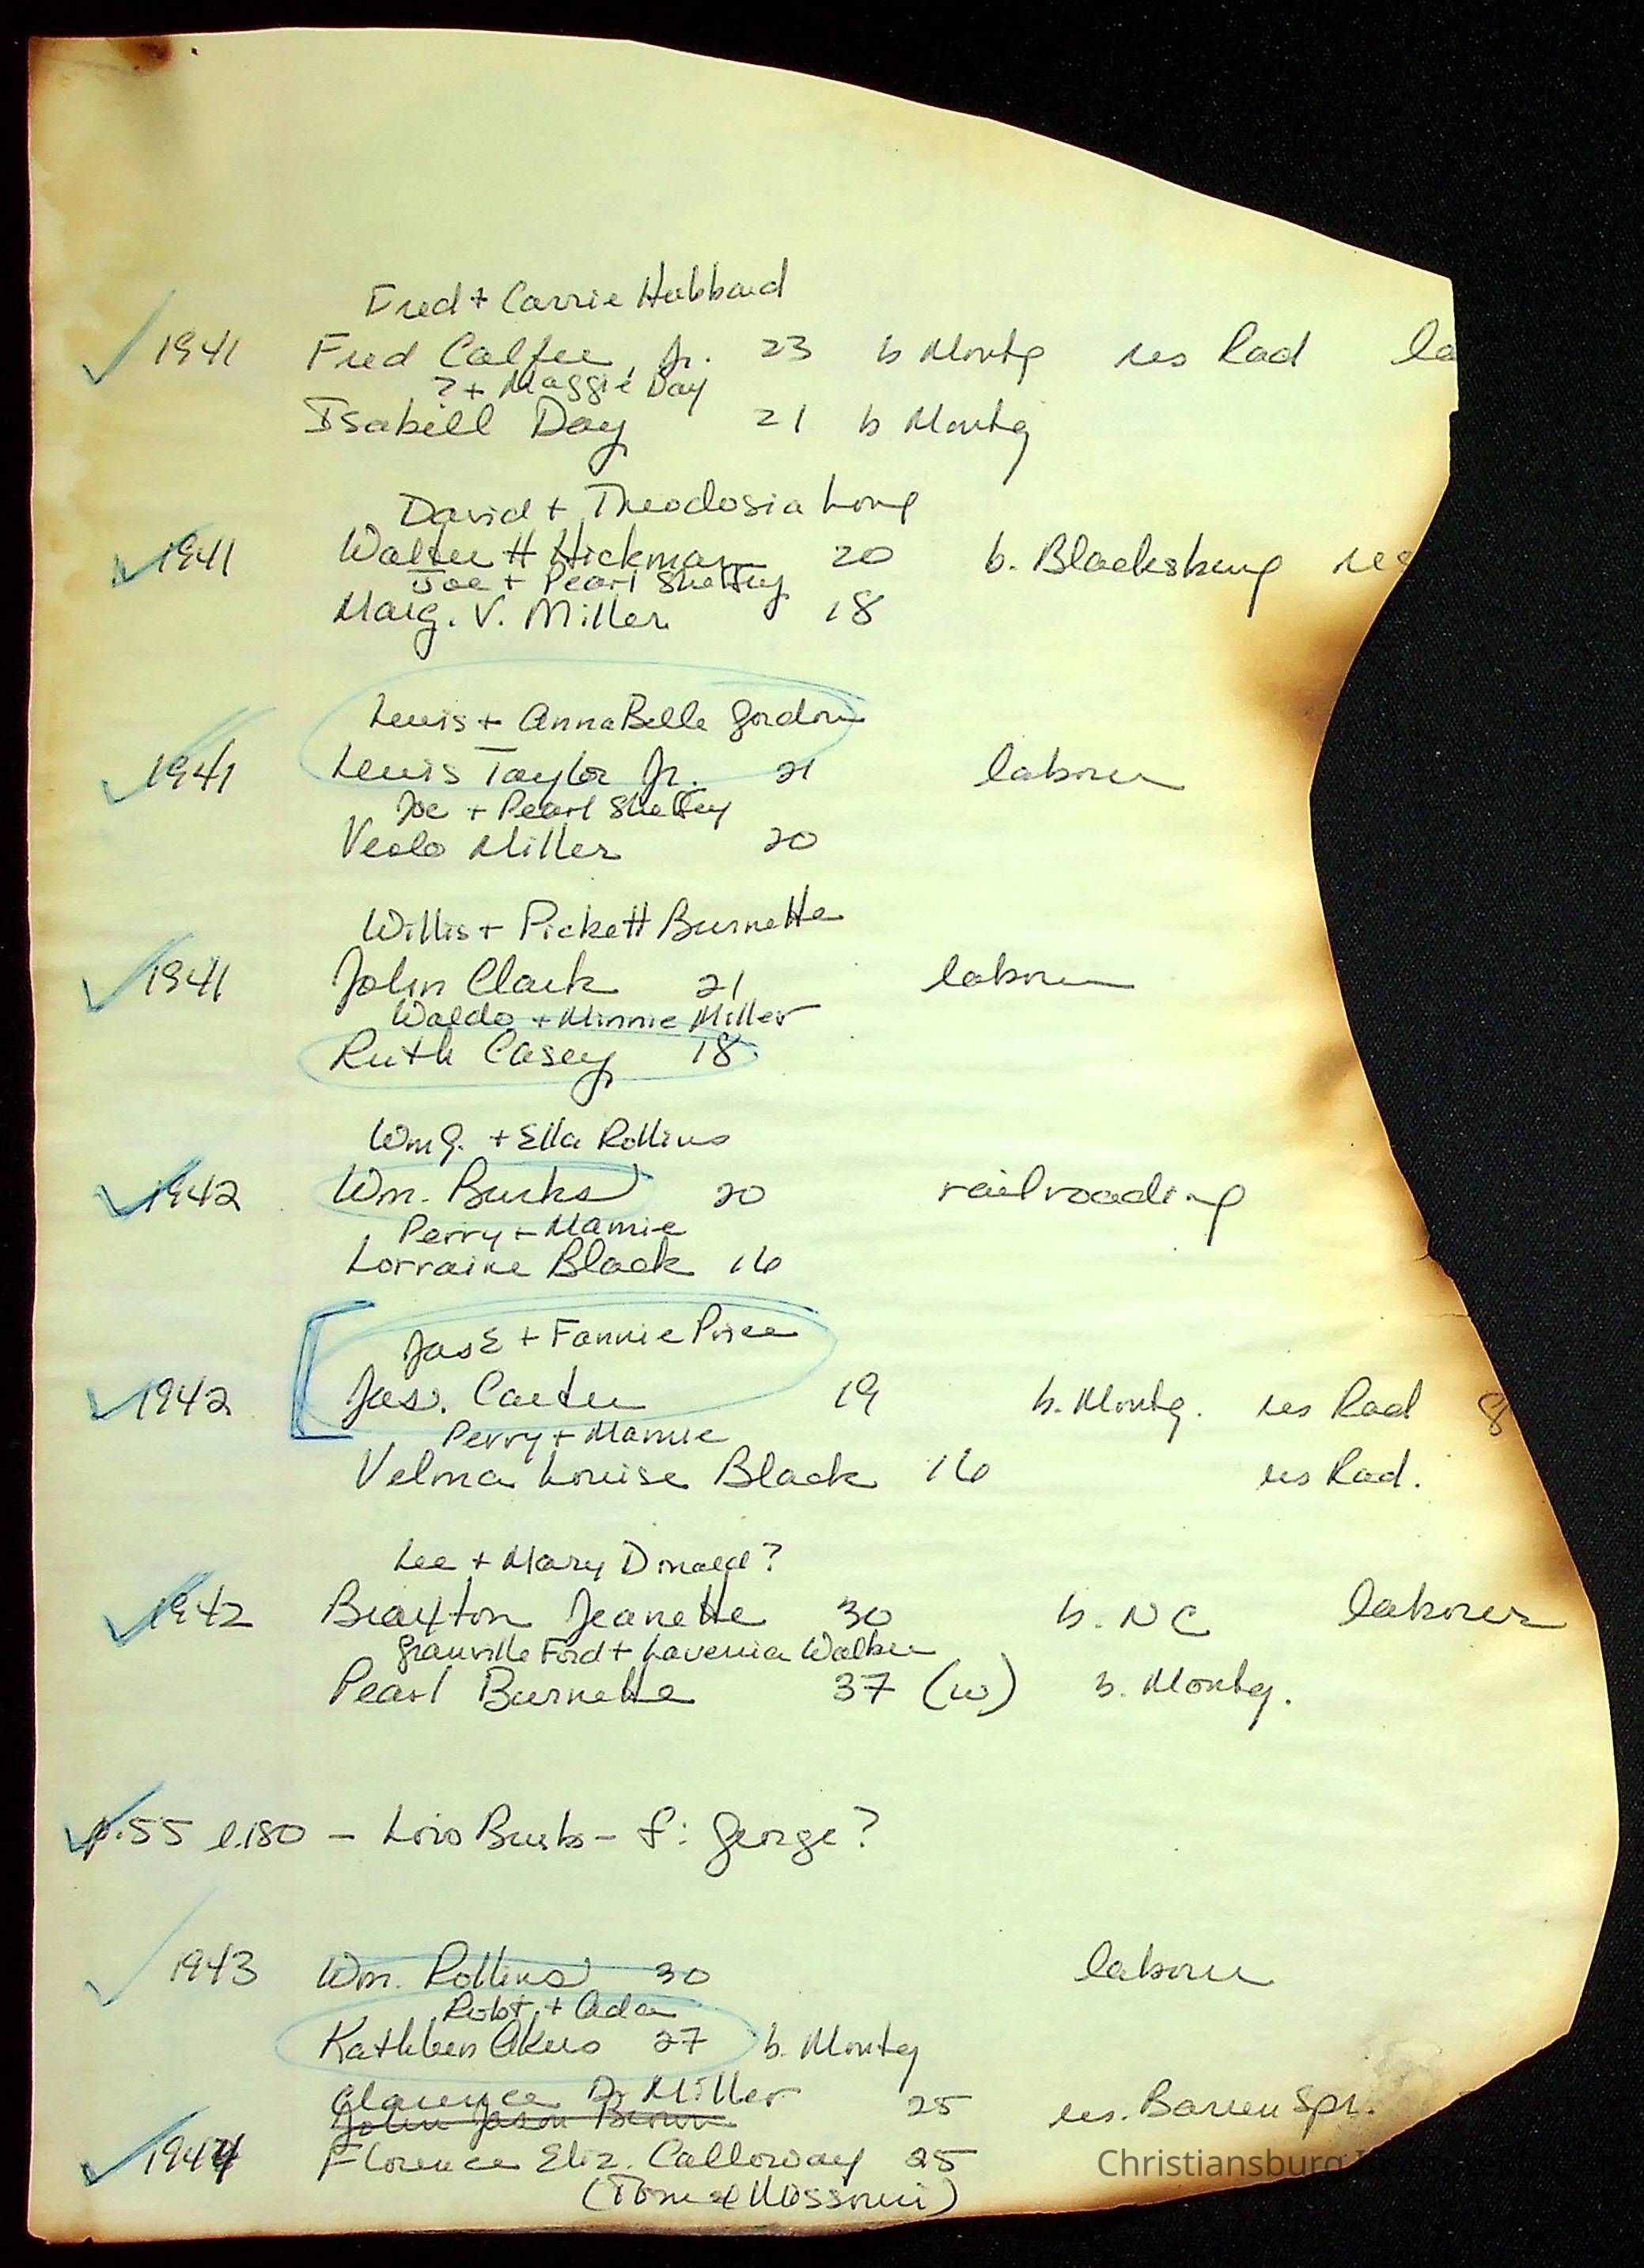 Fred + Carrie Hubbard
1941 Fred Calfee, Jr. 23 b Montg res Rad la
? + Maggie Day
Isabell Day 21 b Montg
David + Theodosia Long
1941 Walter H Hickman 20 b. Blacksburg res
Joe + Pearl
Marg. V. Miller 18
Lewis + AnnaBelle Gordon
1941 Lewis Taylor Jr. 21 laborer
Joe + Pearl
Miller 20
Willis + Pickett Burnette
1941 John Clark 21 laborer
Waldo + Minnie Miller
Ruth Casey 18
Wm G. + Ella Rollins
1942 Wm. Burks 20 railroading
Perry + Mamie
Lorraine Black 16
Jas E + Fannie Price
1942 Jas. Carter 19 b. Montg. res Rad 8
Perry + Mamie
Velma Louise Black 16 res Rad.
Lee + Mary Donald?
1942 Braxton Jeanette 30 b. NC laborer
Granville Ford + Lavenia Walker
Pearl Burnette 37 (w) b. Montg.
p.55 l.180 - Lois Burks - f: George?
1943 Wm. Rollins 30 laborer
Robt. + Ada
Kathleen Akers 27 b. Montg
Clarence D. Miller 25 res. Barren Spr.
John Jason Brown
1944 Florence Eliz. Calloway 25
(Tom + Missouri)
Christiansburg